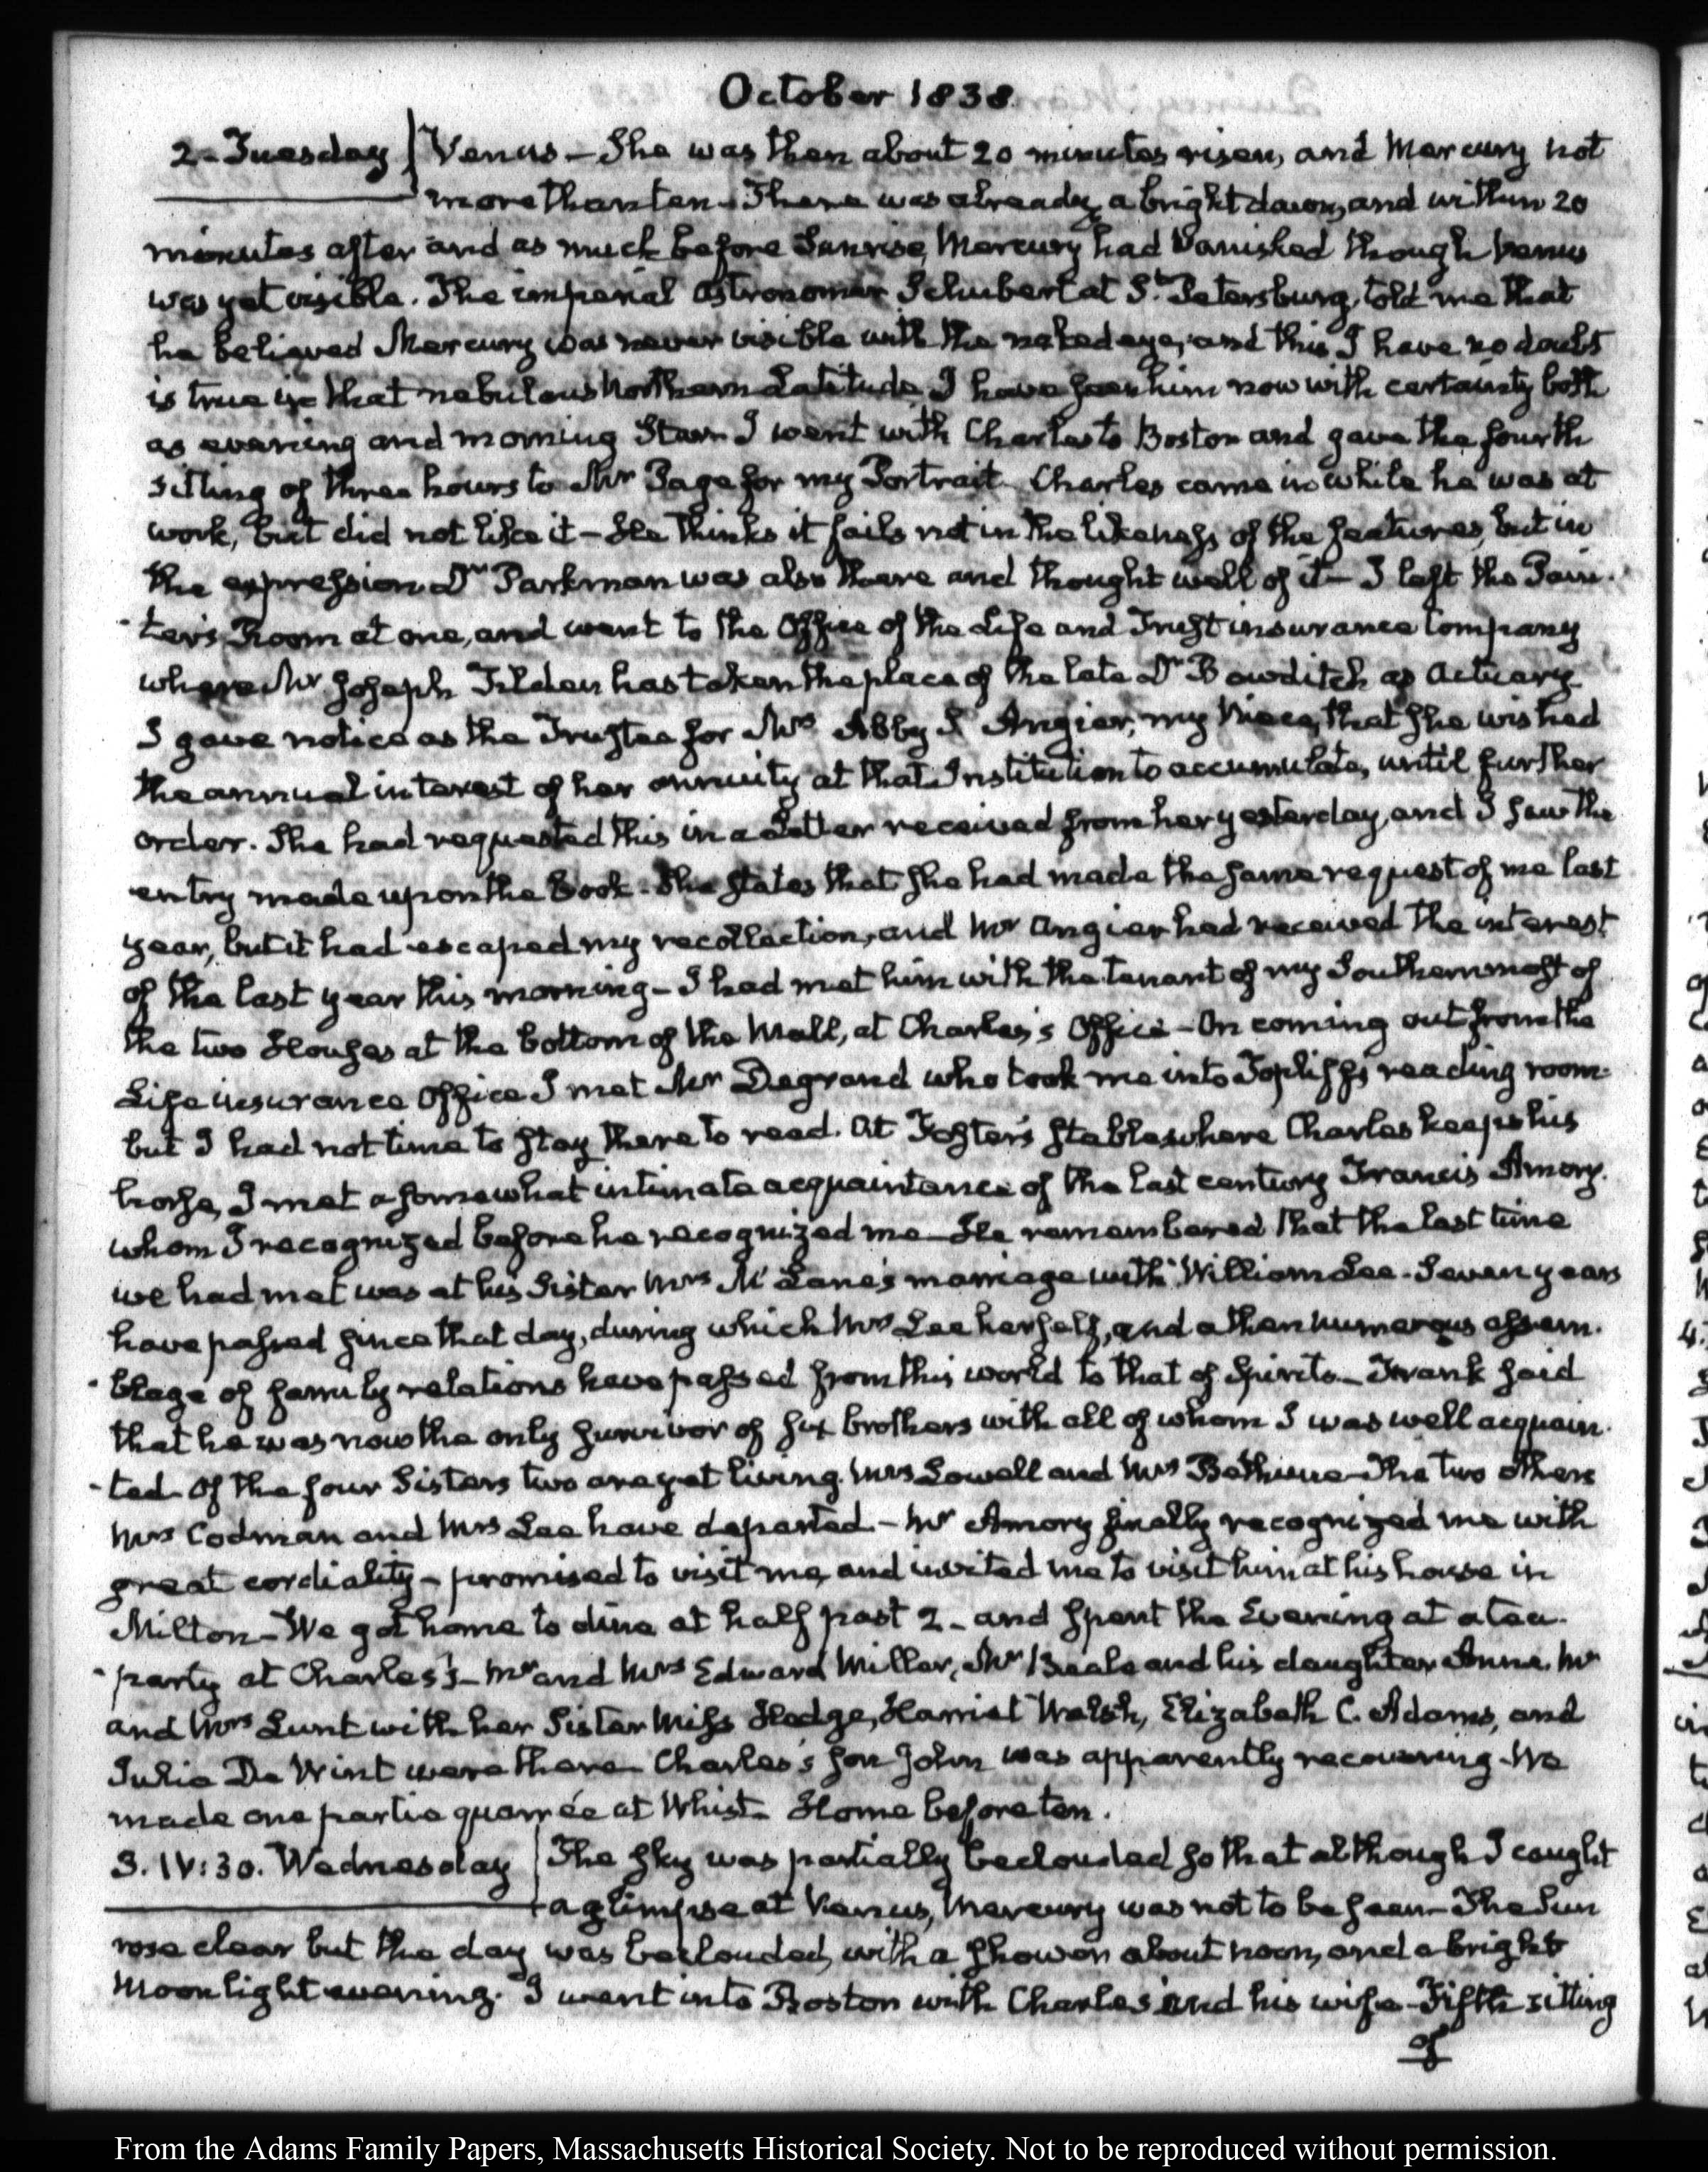 October 1838.
2. Tuesday Venus — She was then about 20 minutes risen, and Mercury not
more than ten. There was already a bright dawn, and within 20
minutes after and as much before Sunrise, Mercury had vanished though Venus
was yet visible. The imperial astronomer Schubert at St. Petersburg, told me that
he believed Mercury was never visible with the naked eye, and this I have no doubt
is true in that nebulous Northern Latitude. I have seen him now with certainty both
as evening and morning Star. I went with Charles to Boston and gave the fourth
sitting of three hours to Mr Page for my Portrait. Charles came in while he was at
work, but did not like it — He thinks it fails not in the likeness of the features, but in
the expression. Dr Parkman was also there and thought well of it — I left the Pain-
-ter's Room at one, and went to the Office of the Life and Trust insurance Company
where Mr Joseph Tilden has taken the place of the late Dr Bowditch as Actuary.
I gave notice as the Trustee for Mrs Abby S. Angier, my Niece, that she wished
the annual interest of her annuity at that Institution to accumulate, until further
order. She had requested this in a Letter received from her yesterday, and I saw the
entry made upon the Book. She states that she had made the same request of me last
year, but it had escaped my recollection, and Mr Angier had received the interest
of the last year this morning — I had met him with the tenant of my Southernmost of
the two Houses at the bottom of the Mall, at Charles's Office — On coming out from the
Life insurance Office I met Mr Degrand who took me into Topliff's reading room
but I had not time to stay there to read. At Foster's stable where Charles keeps his
horse, I met a somewhat intimate acquaintance of the last century Francis Amory.
whom I recognized before he recognized me — He remembered that the last time
we had met was at his Sister Mrs McLane's marriage with William Lee. Seven years
have passed since that day, during which Mrs Lee herself, and a then numerous assem-
-blage of family relations have passed from this world to that of Spirits — Frank said
that he was now the only survivor of six brothers with all of whom I was well acquain-
-ted. Of the four Sisters two are yet living. Mrs Lowell and Mrs Bethune — The two others
Mrs Codman and Mrs Lee have departed — Mr Amory finally recognized me with
great cordiality — promised to visit me, and invited me to visit him at his house in
Milton — We got home to dine at half past 2 — and spent the Evening at a tea
-party at Charles's — Mr and Mrs Edward Miller, Mr Beale and his daughter Anne. Mr
and Mrs Lunt with her Sister Miss Hedge, Harriet Welsh, Elizabeth C. Adams, and
Julia De Wint were there. Charles's son John was apparently recovering. We
made one partie quarrée at Whist — Home before ten.
3. IV:30. Wednesday The sky was partially beclouded so that although I caught
a glimpse at Venus, Mercury was not to be seen — The Sun
rose clear but the day was beclouded, with a shower about noon, and a bright
Moonlight evening. I went into Boston with Charles and his wife — Fifth sitting
of
From the Adams Family Papers, Massachusetts Historical Society. Not to be reproduced without permission.